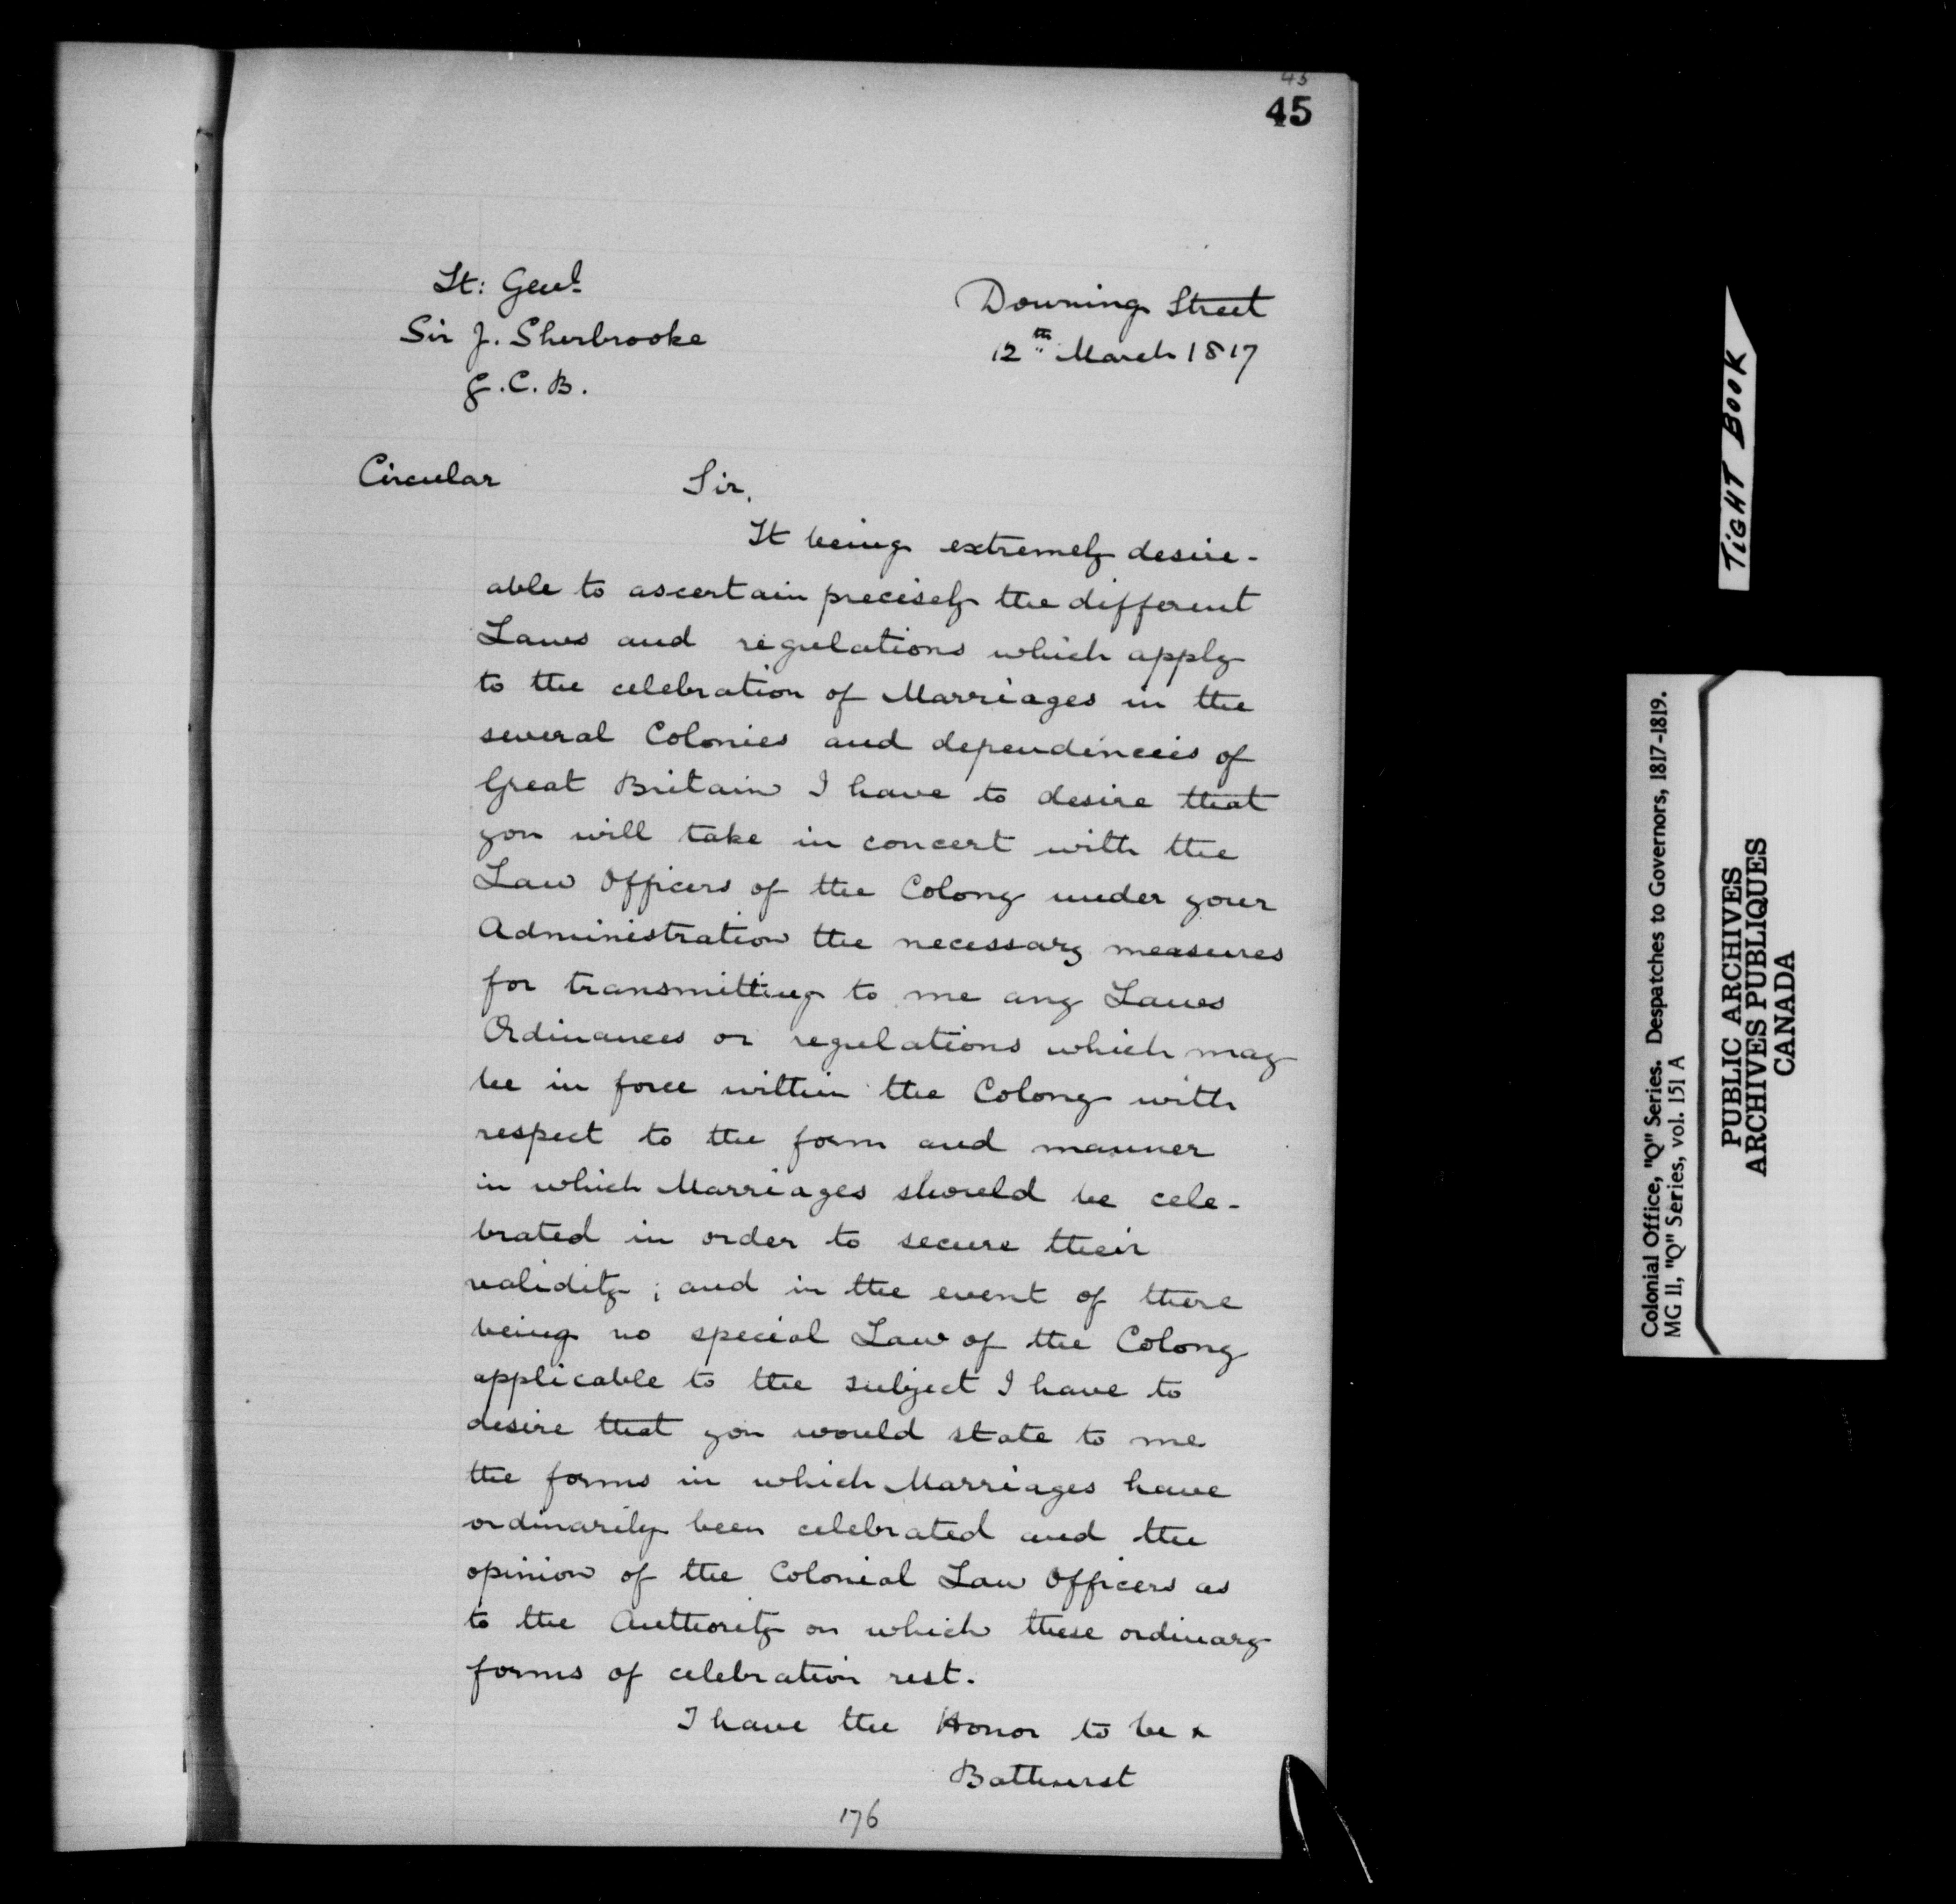 45
45
Lt: Genl.
Sir J. Sherbrooke
G.C.B.
Downing Street
12th March 1817
Circular
Sir,
It being extremely desire-
able to ascertain precisely the different
Laws and regulations which apply
to the celebration of Marriages in the
several Colonies and dependincies of
Great Britain I have to desire that
you will take in concert with the
Law Officers of the Colony under your
Administration the necessary measures
for transmitting to me any Laws
Ordinances or regulations which may
be in force within the Colony with
respect to the form and manner
in which Marriages should be cele-
brated in order to secure their
validity; and in the event of there
being no special Law of the Colony
applicable to the subject I have to
desire that you would state to me
the forms in which Marriages have
ordinarily been celebrated and the
opinion of the Colonial Law Officers as
to the Authority on which these ordinary
forms of celebration rest.
I have the Honor to be &
Bathurst
176
TIGHT BOOK
Colonial Office, "Q" Series. Despatches to Governors, 1817-1819.
MG 11, "Q" Series, vol. 151 A
PUBLIC ARCHIVES
ARCHIVES PUBLIQUES
CANADA